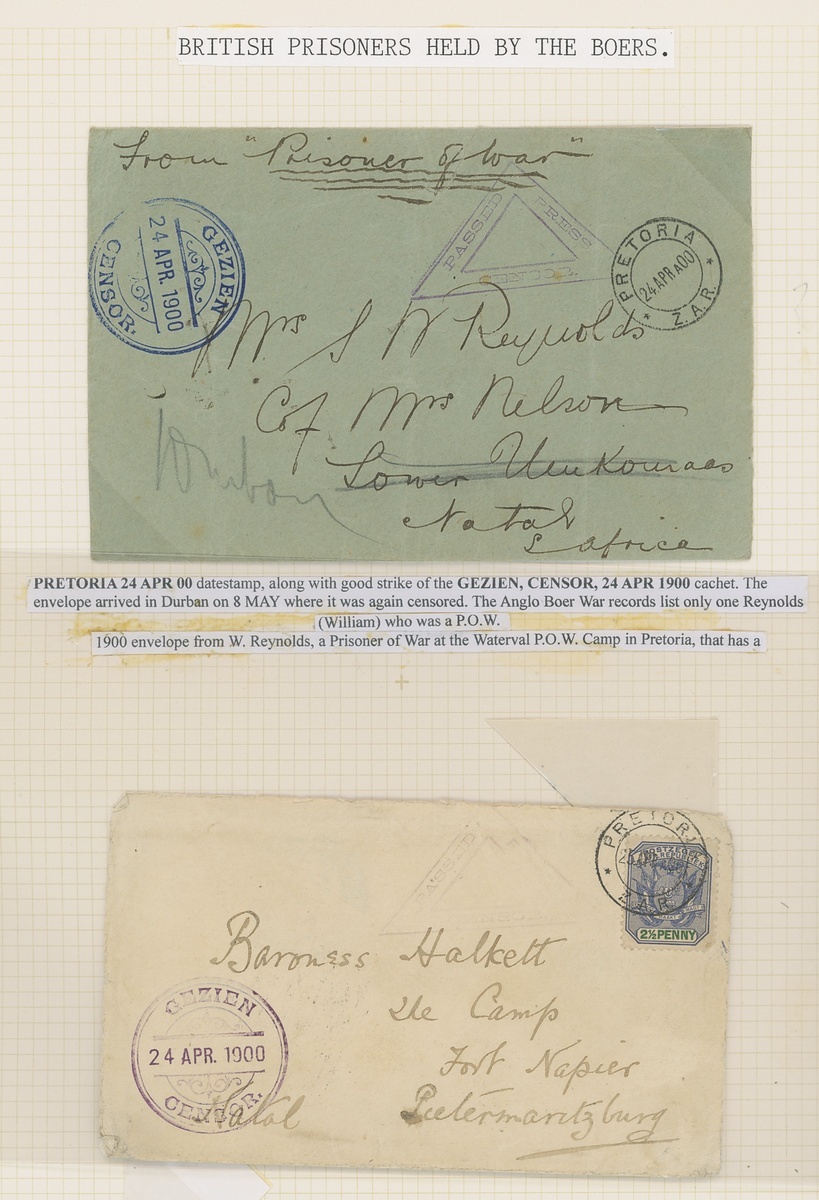 BRITISH PRISONERS HELD BY THE BOERS.
From "Prisoner of War"
GEZIEN
24 APR. 1900
CENSOR.
PASSED PRESS CENSOR.
PRETORIA
24 APR A00
* Z.A.R. *
Mrs S W Reynolds
C/o Mrs Nelson
Lower Umkomaas
Natal
S Africa
Durban
PRETORIA 24 APR 00 datestamp, along with good strike of the GEZIEN, CENSOR, 24 APR 1900 cachet. The
envelope arrived in Durban on 8 MAY where it was again censored. The Anglo Boer War records list only one Reynolds
(William) who was a P.O.W.
1900 envelope from W. Reynolds, a Prisoner of War at the Waterval P.O.W. Camp in Pretoria, that has a
PASSED
PRETORI
Z.A.R.
POSTZEGEL
2½ PENNY
Baroness Halkett
The Camp
Fort Napier
Pietermaritzburg
Natal
GEZIEN
24 APR. 1900
CENSOR.